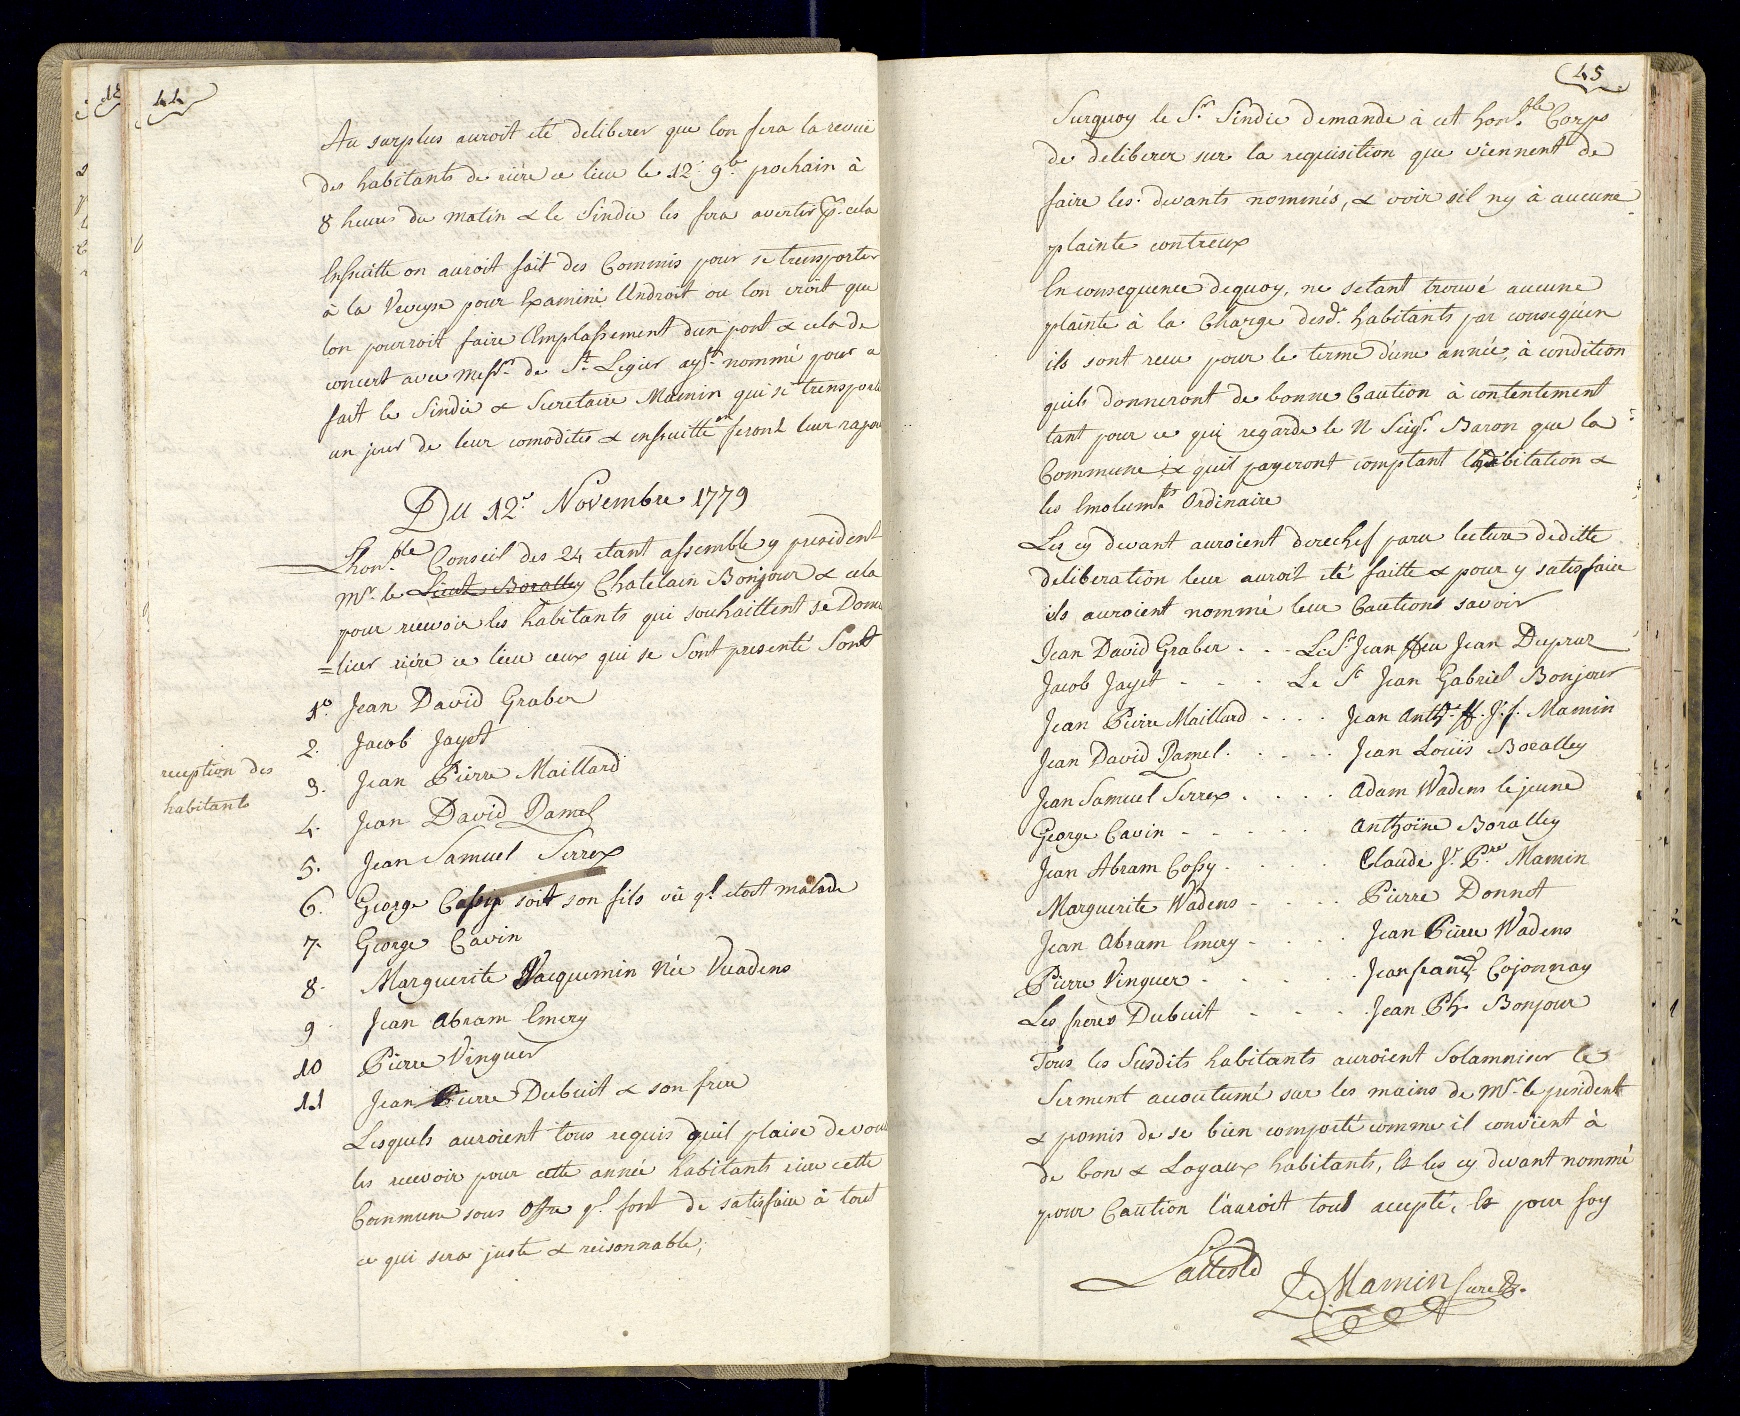 44
Au surplus auroit eté deliberer que lon fera la revüe
des habitants de riére ce lieu le 12e. 9bre. prochain à
8 heures du matin & le Sindic les fera avertir pr. cela
Ensuitte on auroit fait des Commis pour se transporter
à la Veveyse pour Examiné Lendroit ou lon croit que
lon pourroit faire Lemplassement d'un pont & cela de
concert avec messrs. de St. Legier ayst. nommé pour a
fait le Sindic & Secretaire Mamin qui se transporte
un jour de leur comodites & ensuitte en feront leur rapor
Du 12e. Novembre 1779
Lhonble. Conseil des 24 etant assemble y president
Mr. le Lieut. Boralley Chatelain Bonjour & cela
pour recevoir les habitants qui souhaittent se Domi
=lier riére ce lieu ceux qui se Sont presenté Sont
reception des
habitants
1o. Jean David Graber
2. Jacob Jayet
3. Jean Pierre Maillard
4. Jean David Damel
5. Jean Samuel Serrex
6. George Cassip soit son fils vû ql. etoit malade
7. George Cavin
8. Marguerite Jacquemin Née Vuadens
9. Jean Abram Emery
10 Pierre Vinguer
11 Jean Pierre Dubuit & son frere
Lesquels auroient tous requis quil plaise de vou
les recevoir pour cette année habitants riere cette
Commune sous Offre ql. font de satisfaire à tout
ce qui sera juste & reisonnable;
45
Surquoy le Sr. Sindic demande à cet honble. Corps
de deliberer sur la requisition que viennent de
faire les. devants nommés, & voir sil ny à aucune
plainte contreux
En consequence dequoy, ne setant trouvé aucune
plainte à la Charge desd. habitants par consequen
ils sont recu pour le terme d'une année, à condition
quils donneront de bonne Caution à contentement
tant pour ce qui regarde le N Seigr. Baron que la
Commune & quil payeront comptant Lhabitation &
les Emolumts. Ordinaire
Les cy devant auroient derechef paru lecture deditte
deliberation leur auroit eté faitte & pour y satisfaire
ils auroient nommé leur Cautions savoir
Jean David Graber . . . Le Sr. Jean ffeu Jean Dupraz
Jacob Jayet - - - Le Sr Jean Gabriel Bonjour
Jean Pierre Maillard . . . . Jean Anth. ff. J. f. Mamin
Jean David Damel. . . . . Jean Louïs Boralley
Jean Samuel Serrex . . . . Adam Wadens le jeune
George Cavin - - - - - Anthoine Boralley
Jean Abram Cossy . . . . Claude Jn. Prre Mamin
Marguerite Wadens - . . . . Pierre Donnet
Jean Abram Emery - . . . . Jean Pierre Wadens
Pierre Vinguer . . . . . Jean francs. Cojonnay
Les freres Dubuit - . . . . Jean Ph. Bonjour
Tous les Susdits habitants auroient Solamniser le
Serment accoutumé sur les mains de Mr. le president
& promis de se bien comporté comme il convient à
de bon & Loyaux habitants, Et les cy devant nommé
pour Caution l'auroit tout accepté, Et pour foy
Lattesté
JD. Mamin Secret.